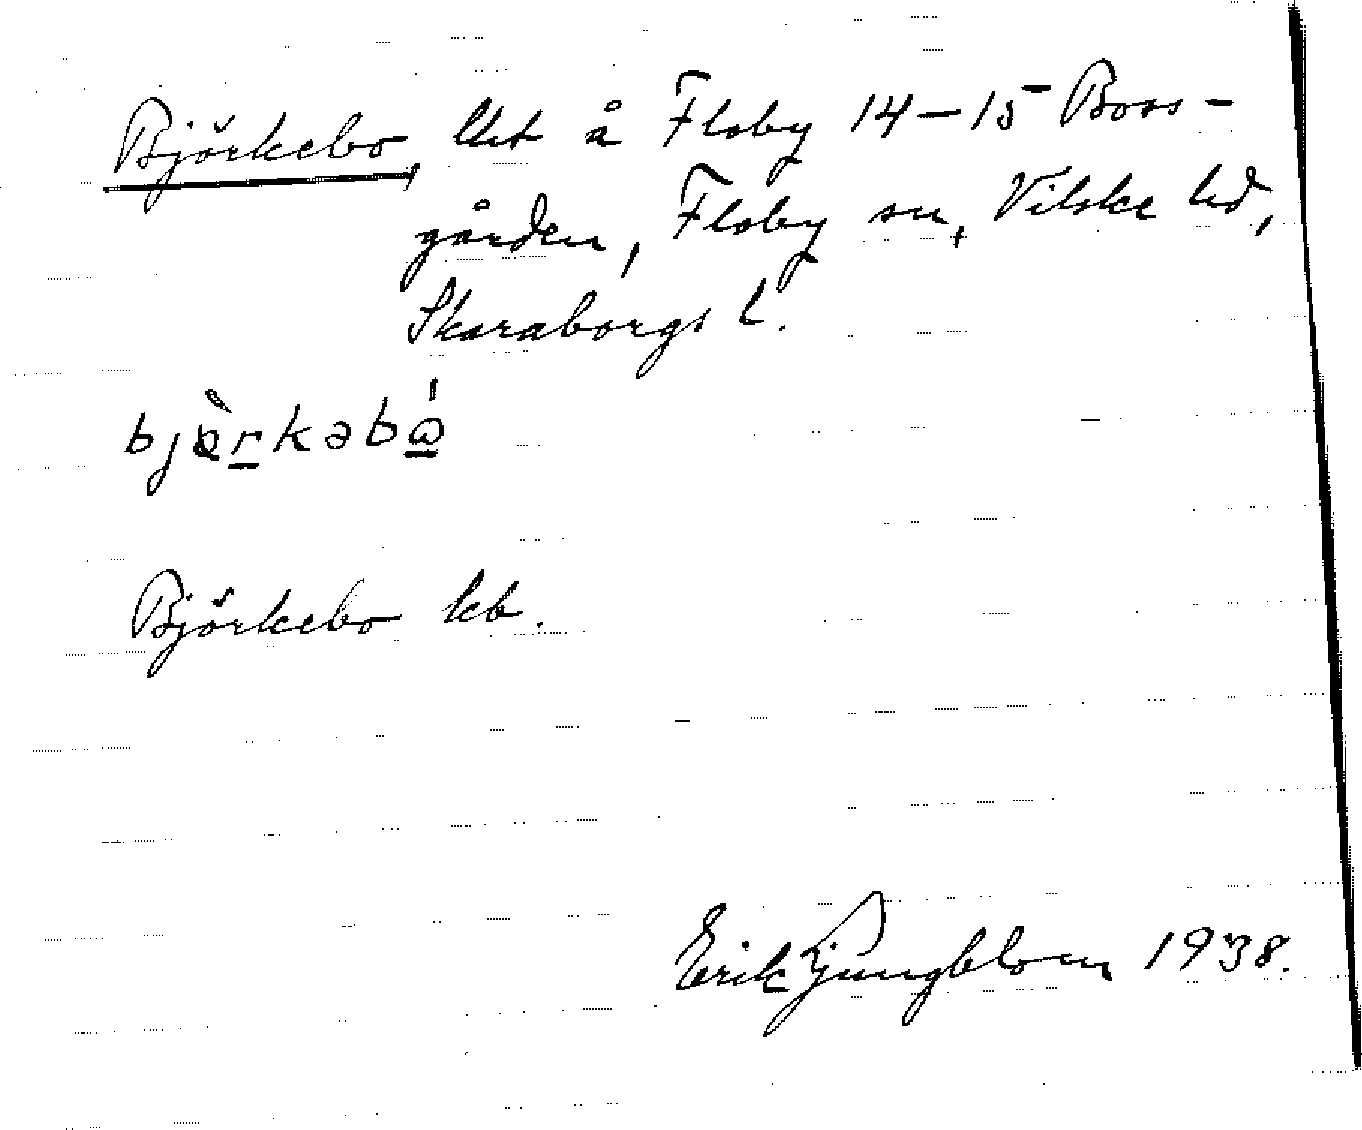 Björkebo, lht å Floby 14–15 Boss-
gården, Floby sn, Vilske hd,
Skaraborgs l.
Björkebo kb.
Erik Ljungblom 1938.